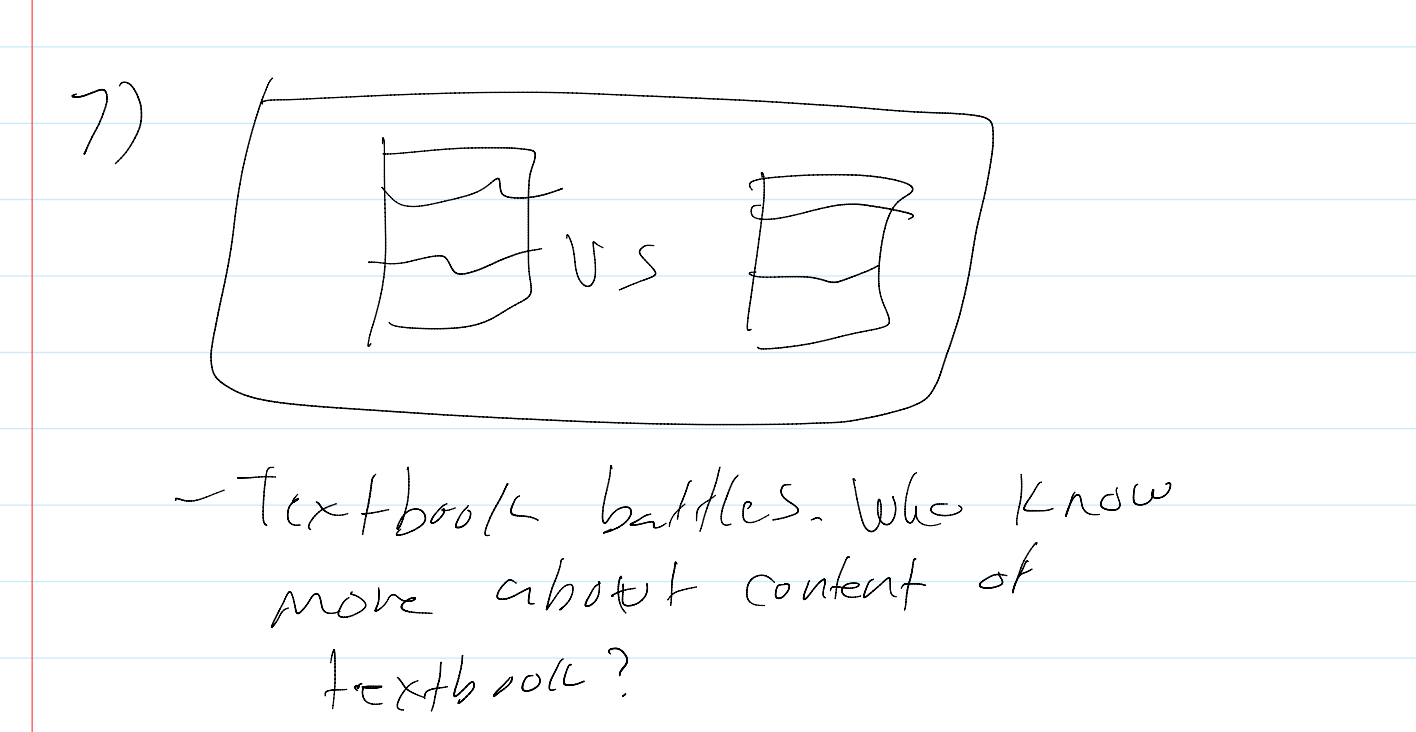 7)
VS
- Textbook battles. Who know
more about content of
textbook?